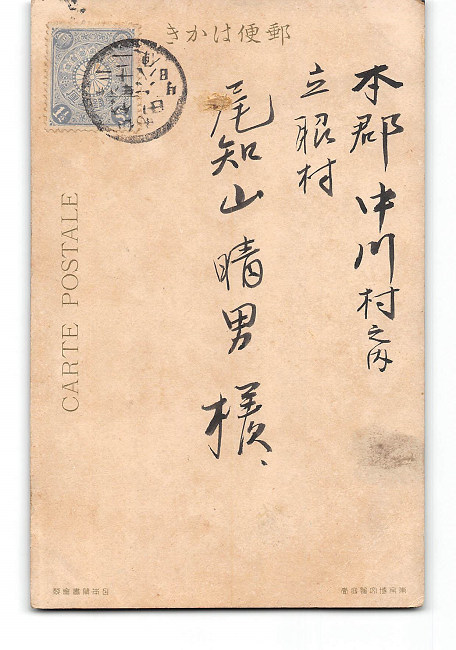 郵便はかき
本郡中川村之内
立昭村
尾知山晴男様、
CARTE POSTALE
1½